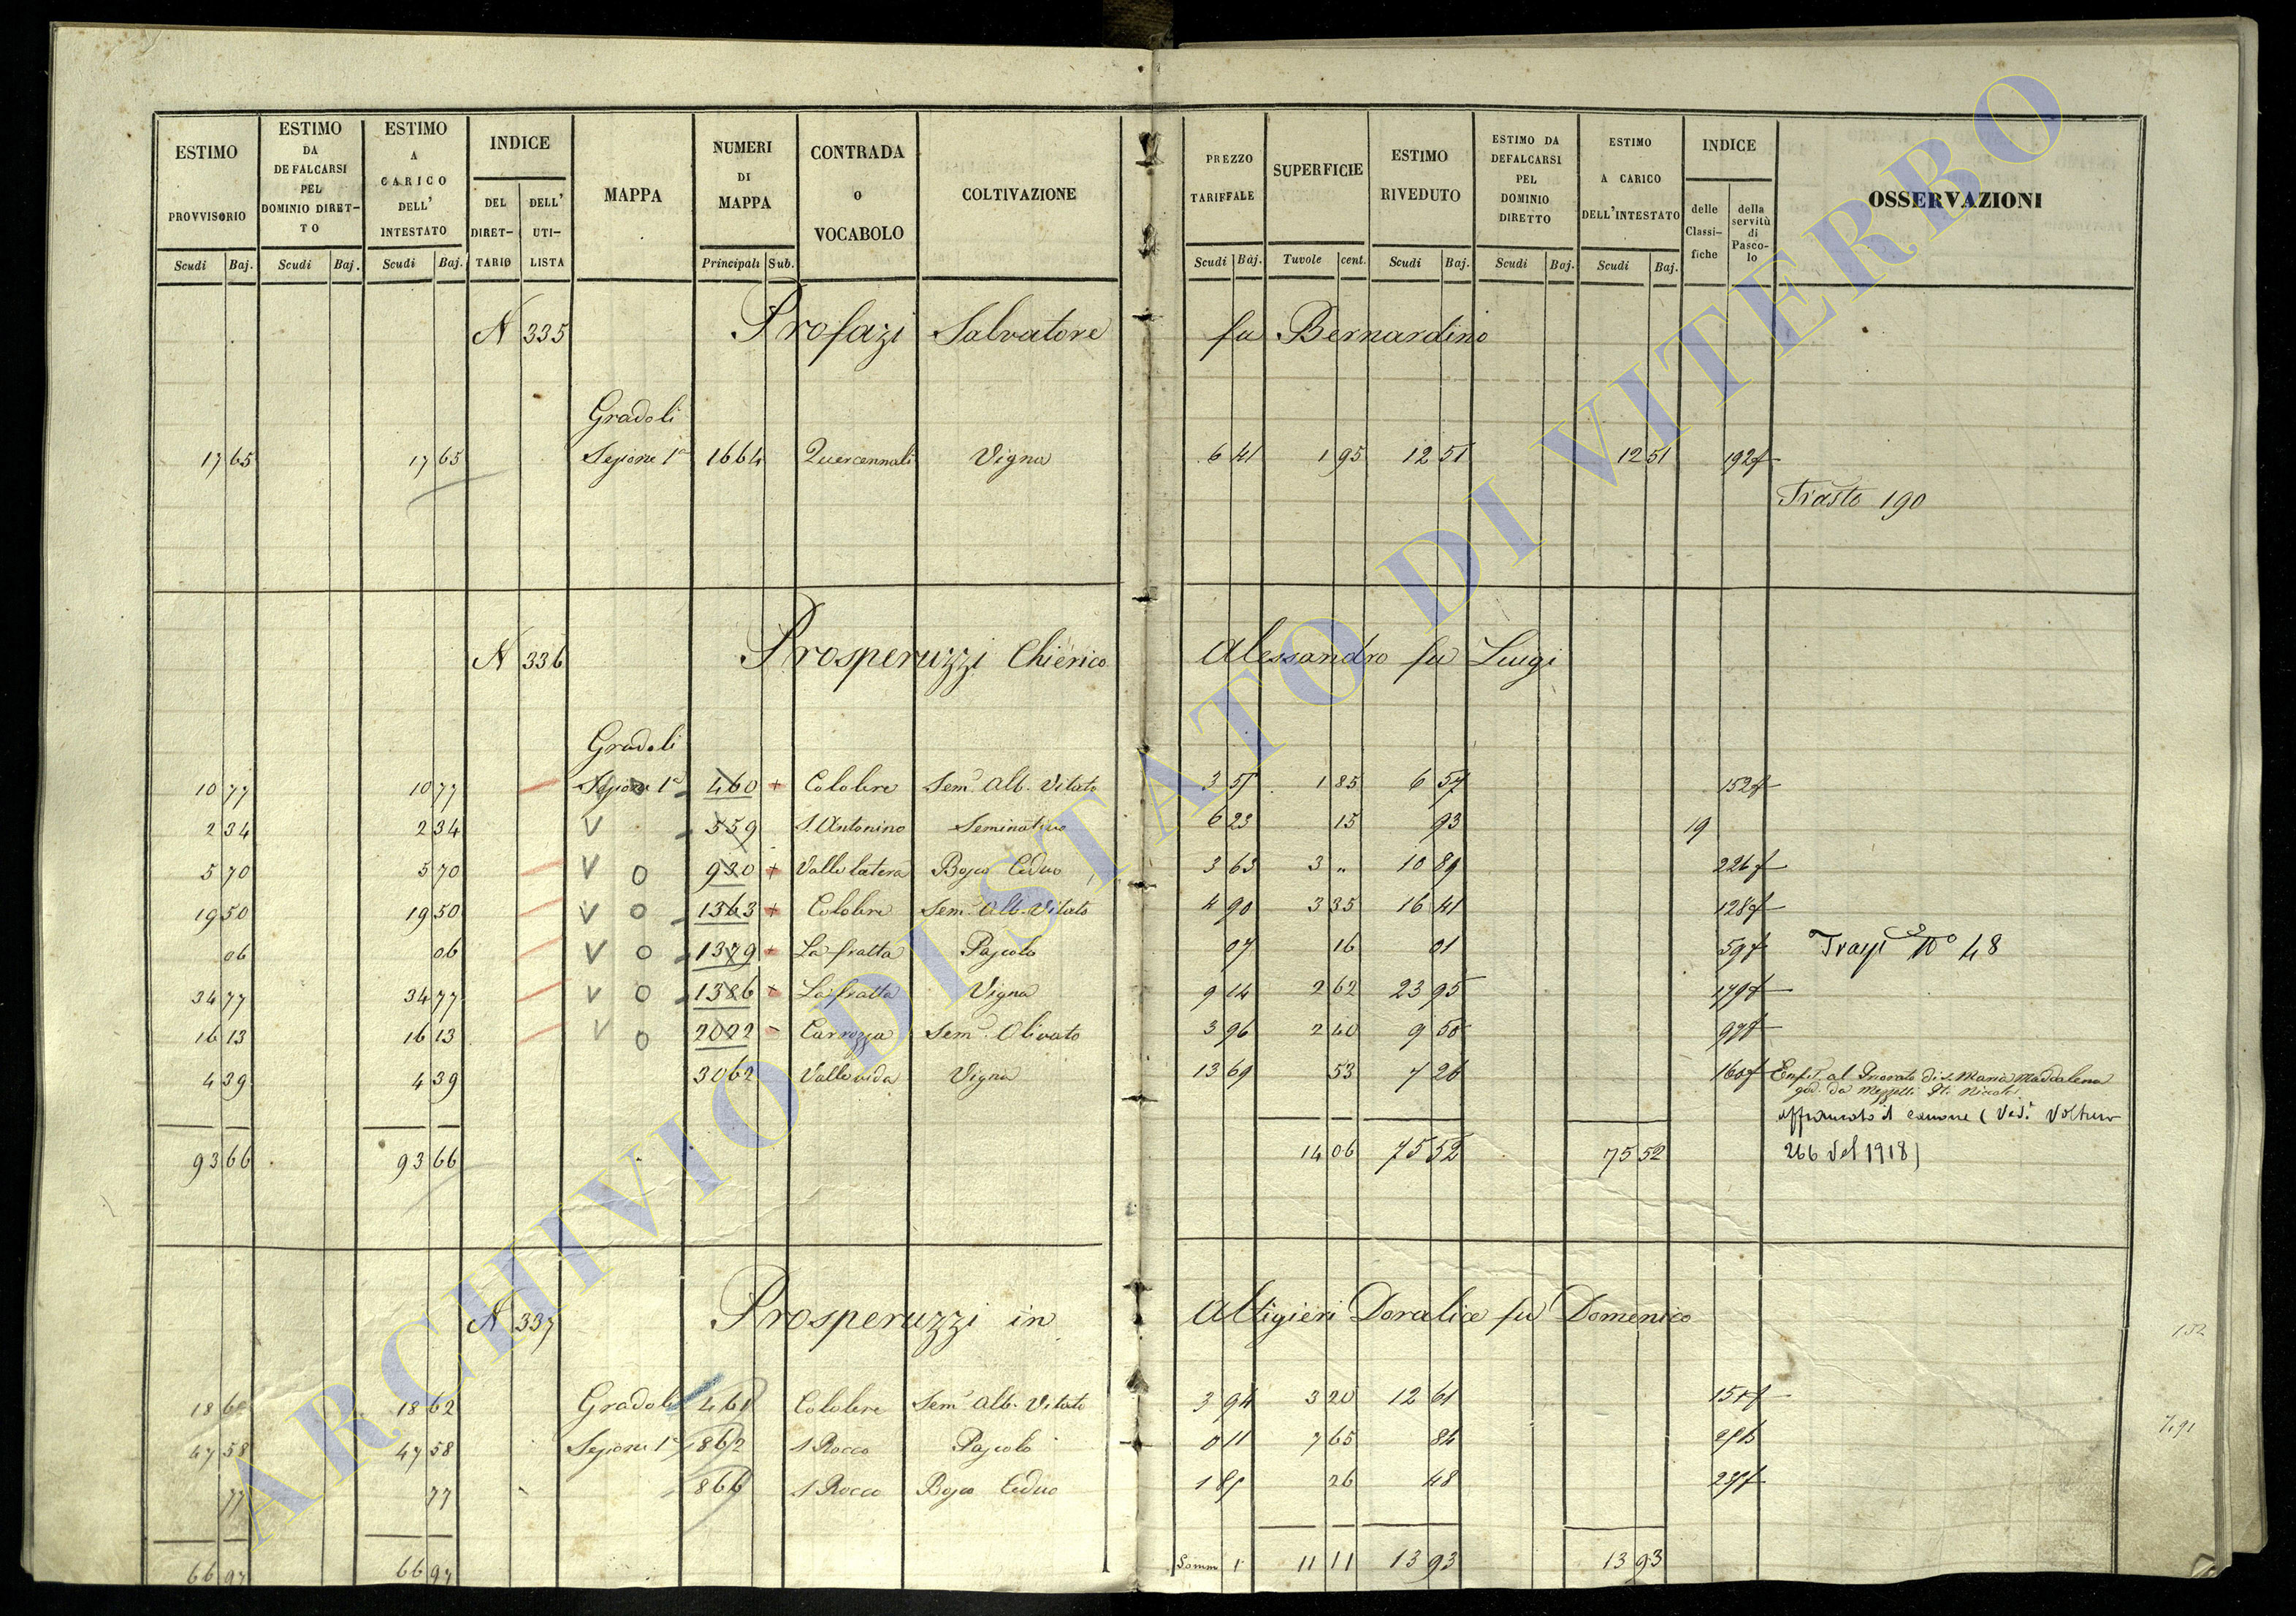 ESTIMO PROVVISORIO Scudi Baj.
ESTIMO DA DEFALCARSI PEL DOMINIO DIRET-TO Scudi Baj.
ESTIMO A CARICO DELL' INTESTATO Scudi Baj.
INDICE DEL DIRET-TARIO DELL' UTI-LISTA
MAPPA
NUMERI DI MAPPA Principali Sub.
CONTRADA o VOCABOLO
COLTIVAZIONE
PREZZO TARIFFALE Scudi Baj.
SUPERFICIE Tavole cent.
ESTIMO RIVEDUTO Scudi Baj.
ESTIMO DA DEFALCARSI PEL DOMINIO DIRETTO Scudi Baj.
ESTIMO A CARICO DELL'INTESTATO Scudi Baj.
INDICE delle Classi-fiche della servitù di Pasco-lo
OSSERVAZIONI
N 335 Profazi Salvatore fu Bernardino
Gradoli
17 65 17 65 Sezione 1a 1664 Quercennali Vigna 6 41 1 95 12 51 12 51 192f
Trasto 190
N 336 Prosperuzzi Chierico Alessandro fu Luigi
Gradoli
10 77 10 77 Sezione 1a 460 + Colobre Sem. Alb. Vitato 3 57 1 85 6 57 152f
2 34 2 34 V 559 S. Antonino Seminativo 6 23 15 93 19
5 70 5 70 V O 930 + Valle latera Bosco Ceduo 3 63 3 „ 10 89 226f
19 50 19 50 V O 1363 + Colobre Sem. Alb. Vitato 4 90 3 35 16 41 128f
06 06 V O 1379 + La fratta Pascolo 07 16 01 59f 48
34 77 34 77 V O 1386 + La fratta Vigna 9 14 2 62 23 95 179f
16 13 16 13 V O 2022 - Carrozza Sem. Olivato 3 96 2 40 9 50 97f
4 39 4 39 3062 Valle vida Vigna 13 69 53 7 26 160f Enfit. al Priorato di S. Maria Maddalena
god. da
affrancato il canone (Ved. Volture
93 66 93 66 14 06 75 52 75 52 266 del 1918)
N 337 Prosperuzzi in Altigieri Doralice fu Domenico
152
18 62 18 62 Gradoli 461 Colobre Sem. Alb. Vitato 3 94 3 20 12 61
47 58 47 58 Sezione 1a 862 S Rocco Pascolo 0 11 7 65 84
77 77 866 S Rocco Bosco Ceduo 1 26 48
66 97 66 97 Somm 11 11 13 93 13 93
ARCHIVIO DI STATO DI VITERBO